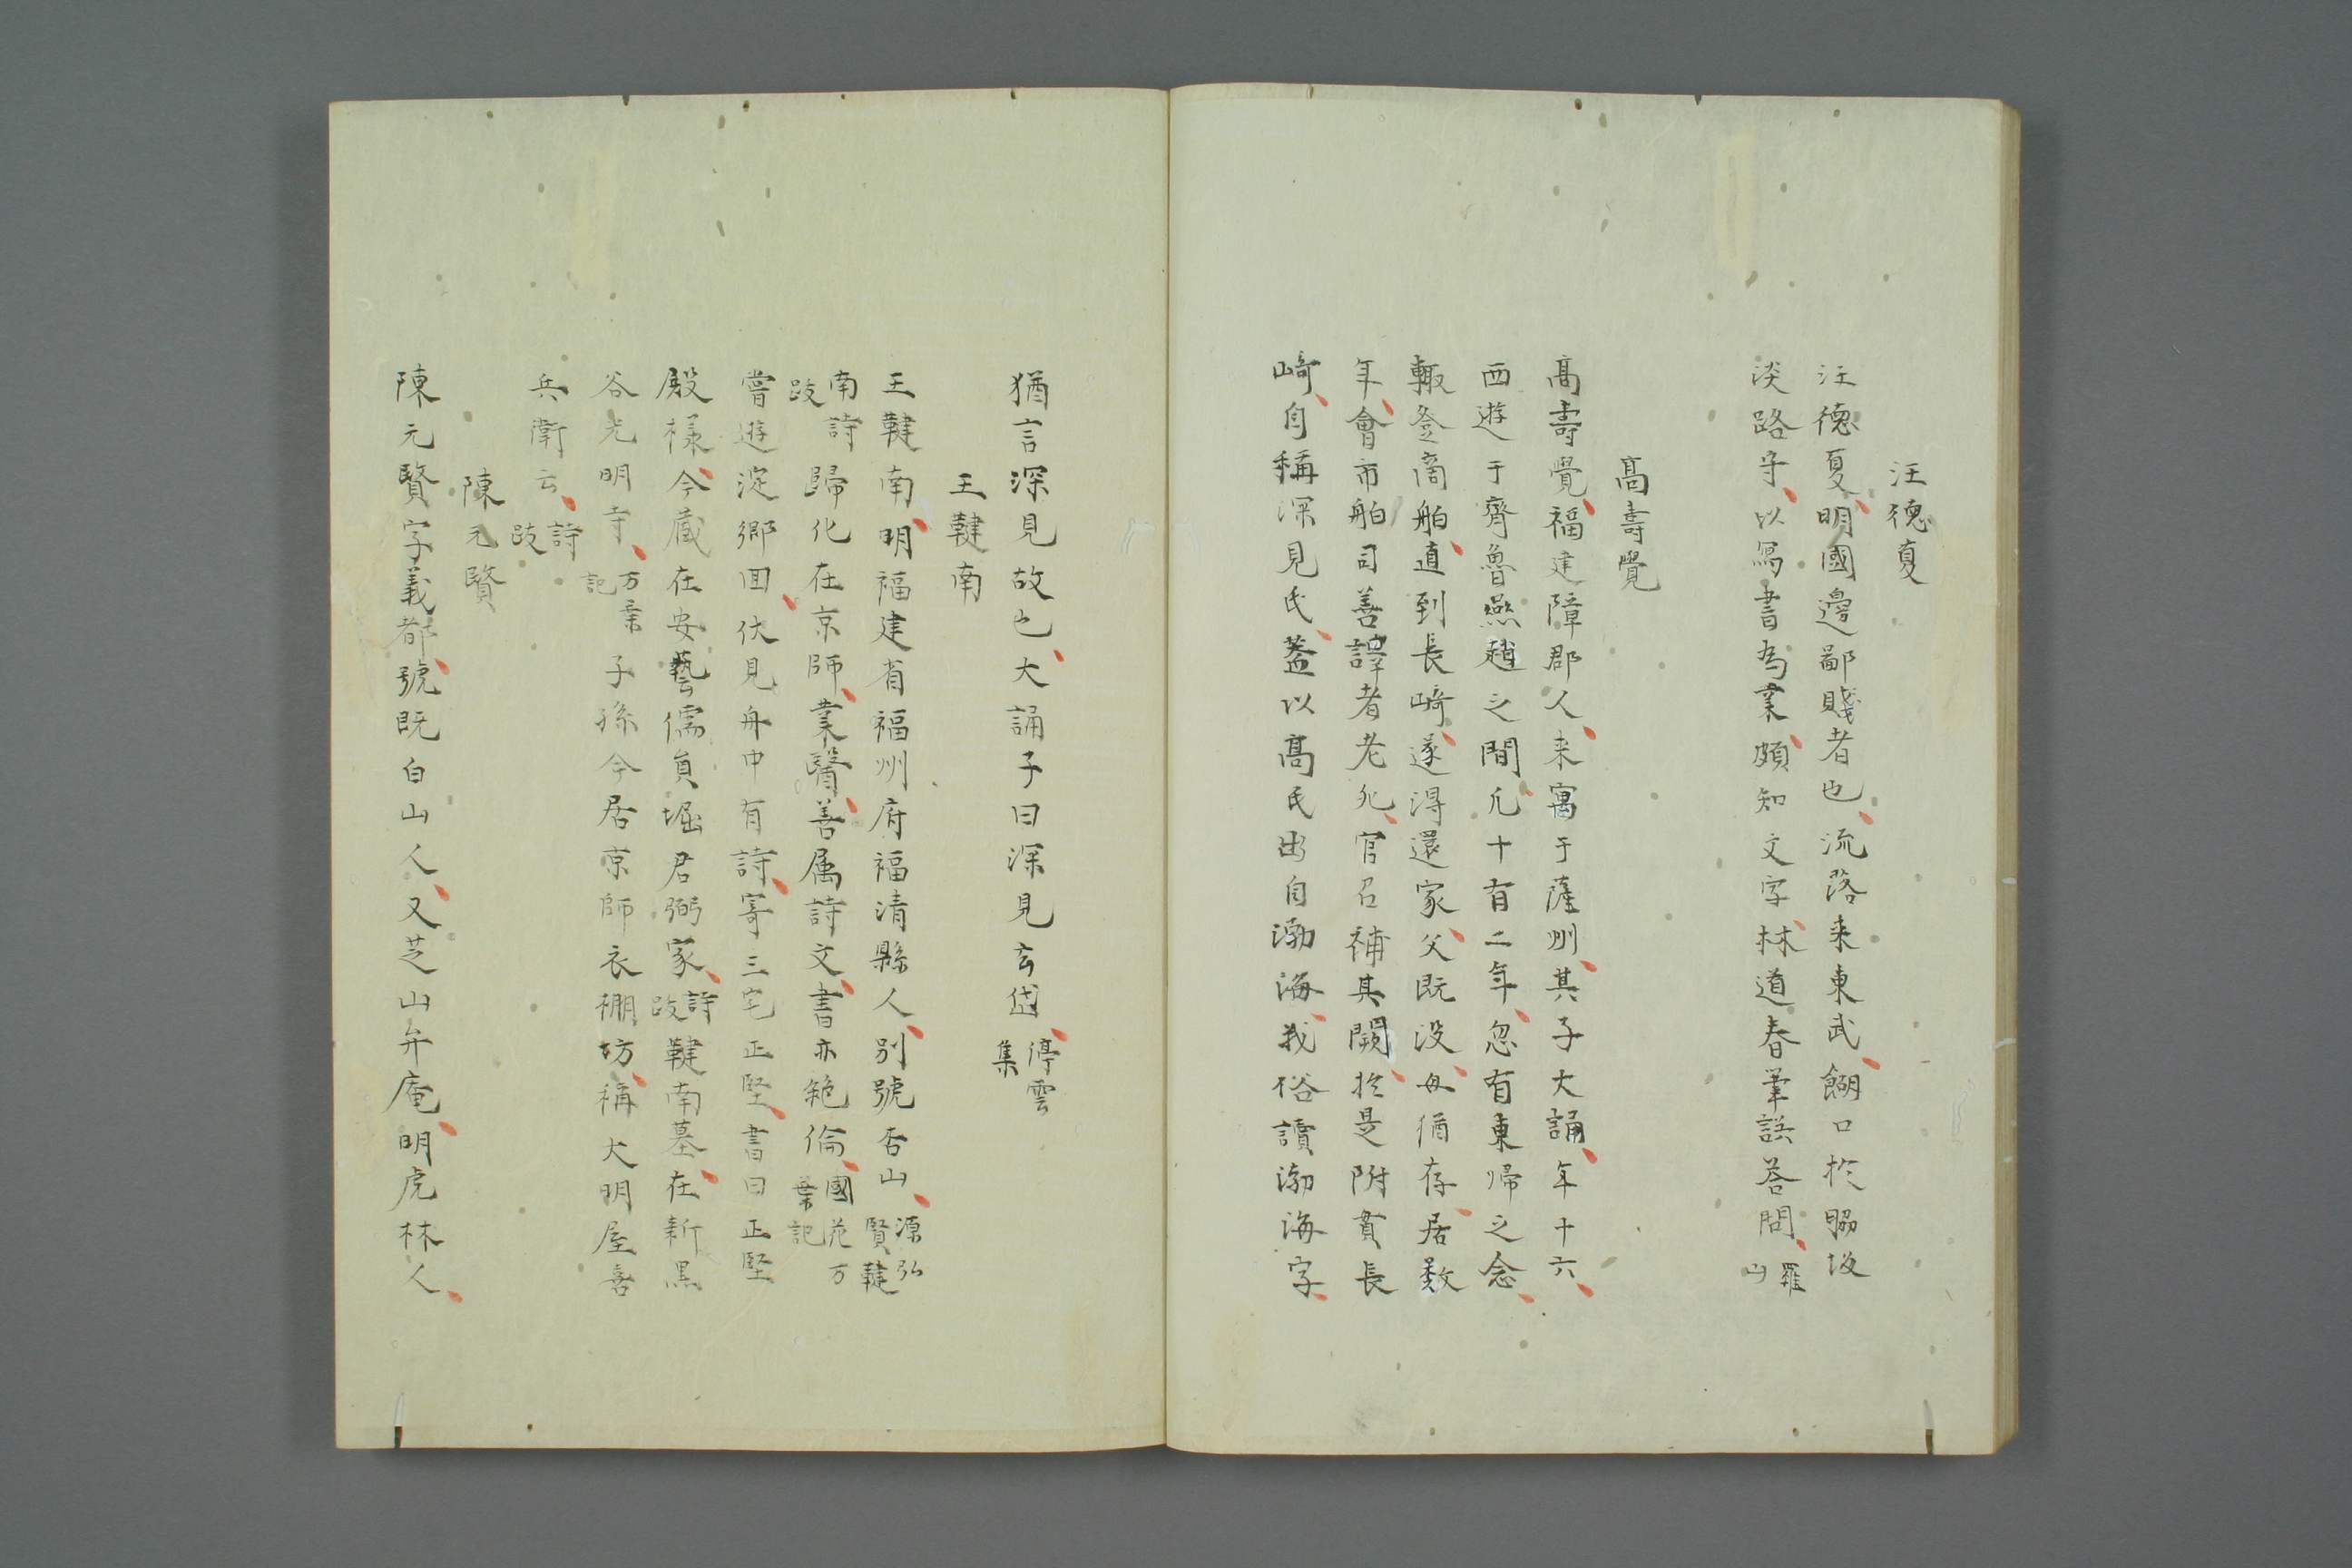 汪德夏
汪德夏、明國邊鄙賤者也、流落来東武、餬口於脇坂
淡路守、以寫書為業、頗知文字、林道春筆談荅問、羅山
高壽覺
高壽覺、福建障郡人、来寓于薩州、其子大誦、年十六、
西遊于齊魯燕趙之間、凢十有二年、忽有東帰之念、
輙登商舶、直到長崎、遂得還家、父既没、母猶存、居数
年、會市舶司善譯者老死、官召補其闕、於是附貫長
崎、自稱深見氏、蓋以高氏出自渤海、我俗讀渤海字、
猶言深見故也、大誦子曰深見玄岱、停雲集
王鞬南
王鞬南、明福建省福州府福清縣人、別號杏山、源弘賢鞬
南詩跋 歸化在京師、業醫、善属詩文、書亦絶倫、國苑万葉記
嘗遊淀鄉、囬伏見舟中有詩、寄三宅正堅、書曰正堅
殿様、今蔵在安藝儒員堀君弼家、詩跋 鞬南墓、在新黒
谷光明寺、万葉記 子孫今居京師衣棚坊、稱大明屋喜
兵衛云、詩跋
陳元贇
陳元贇字義都、號既白山人、又芝山弁庵、明虎林人、